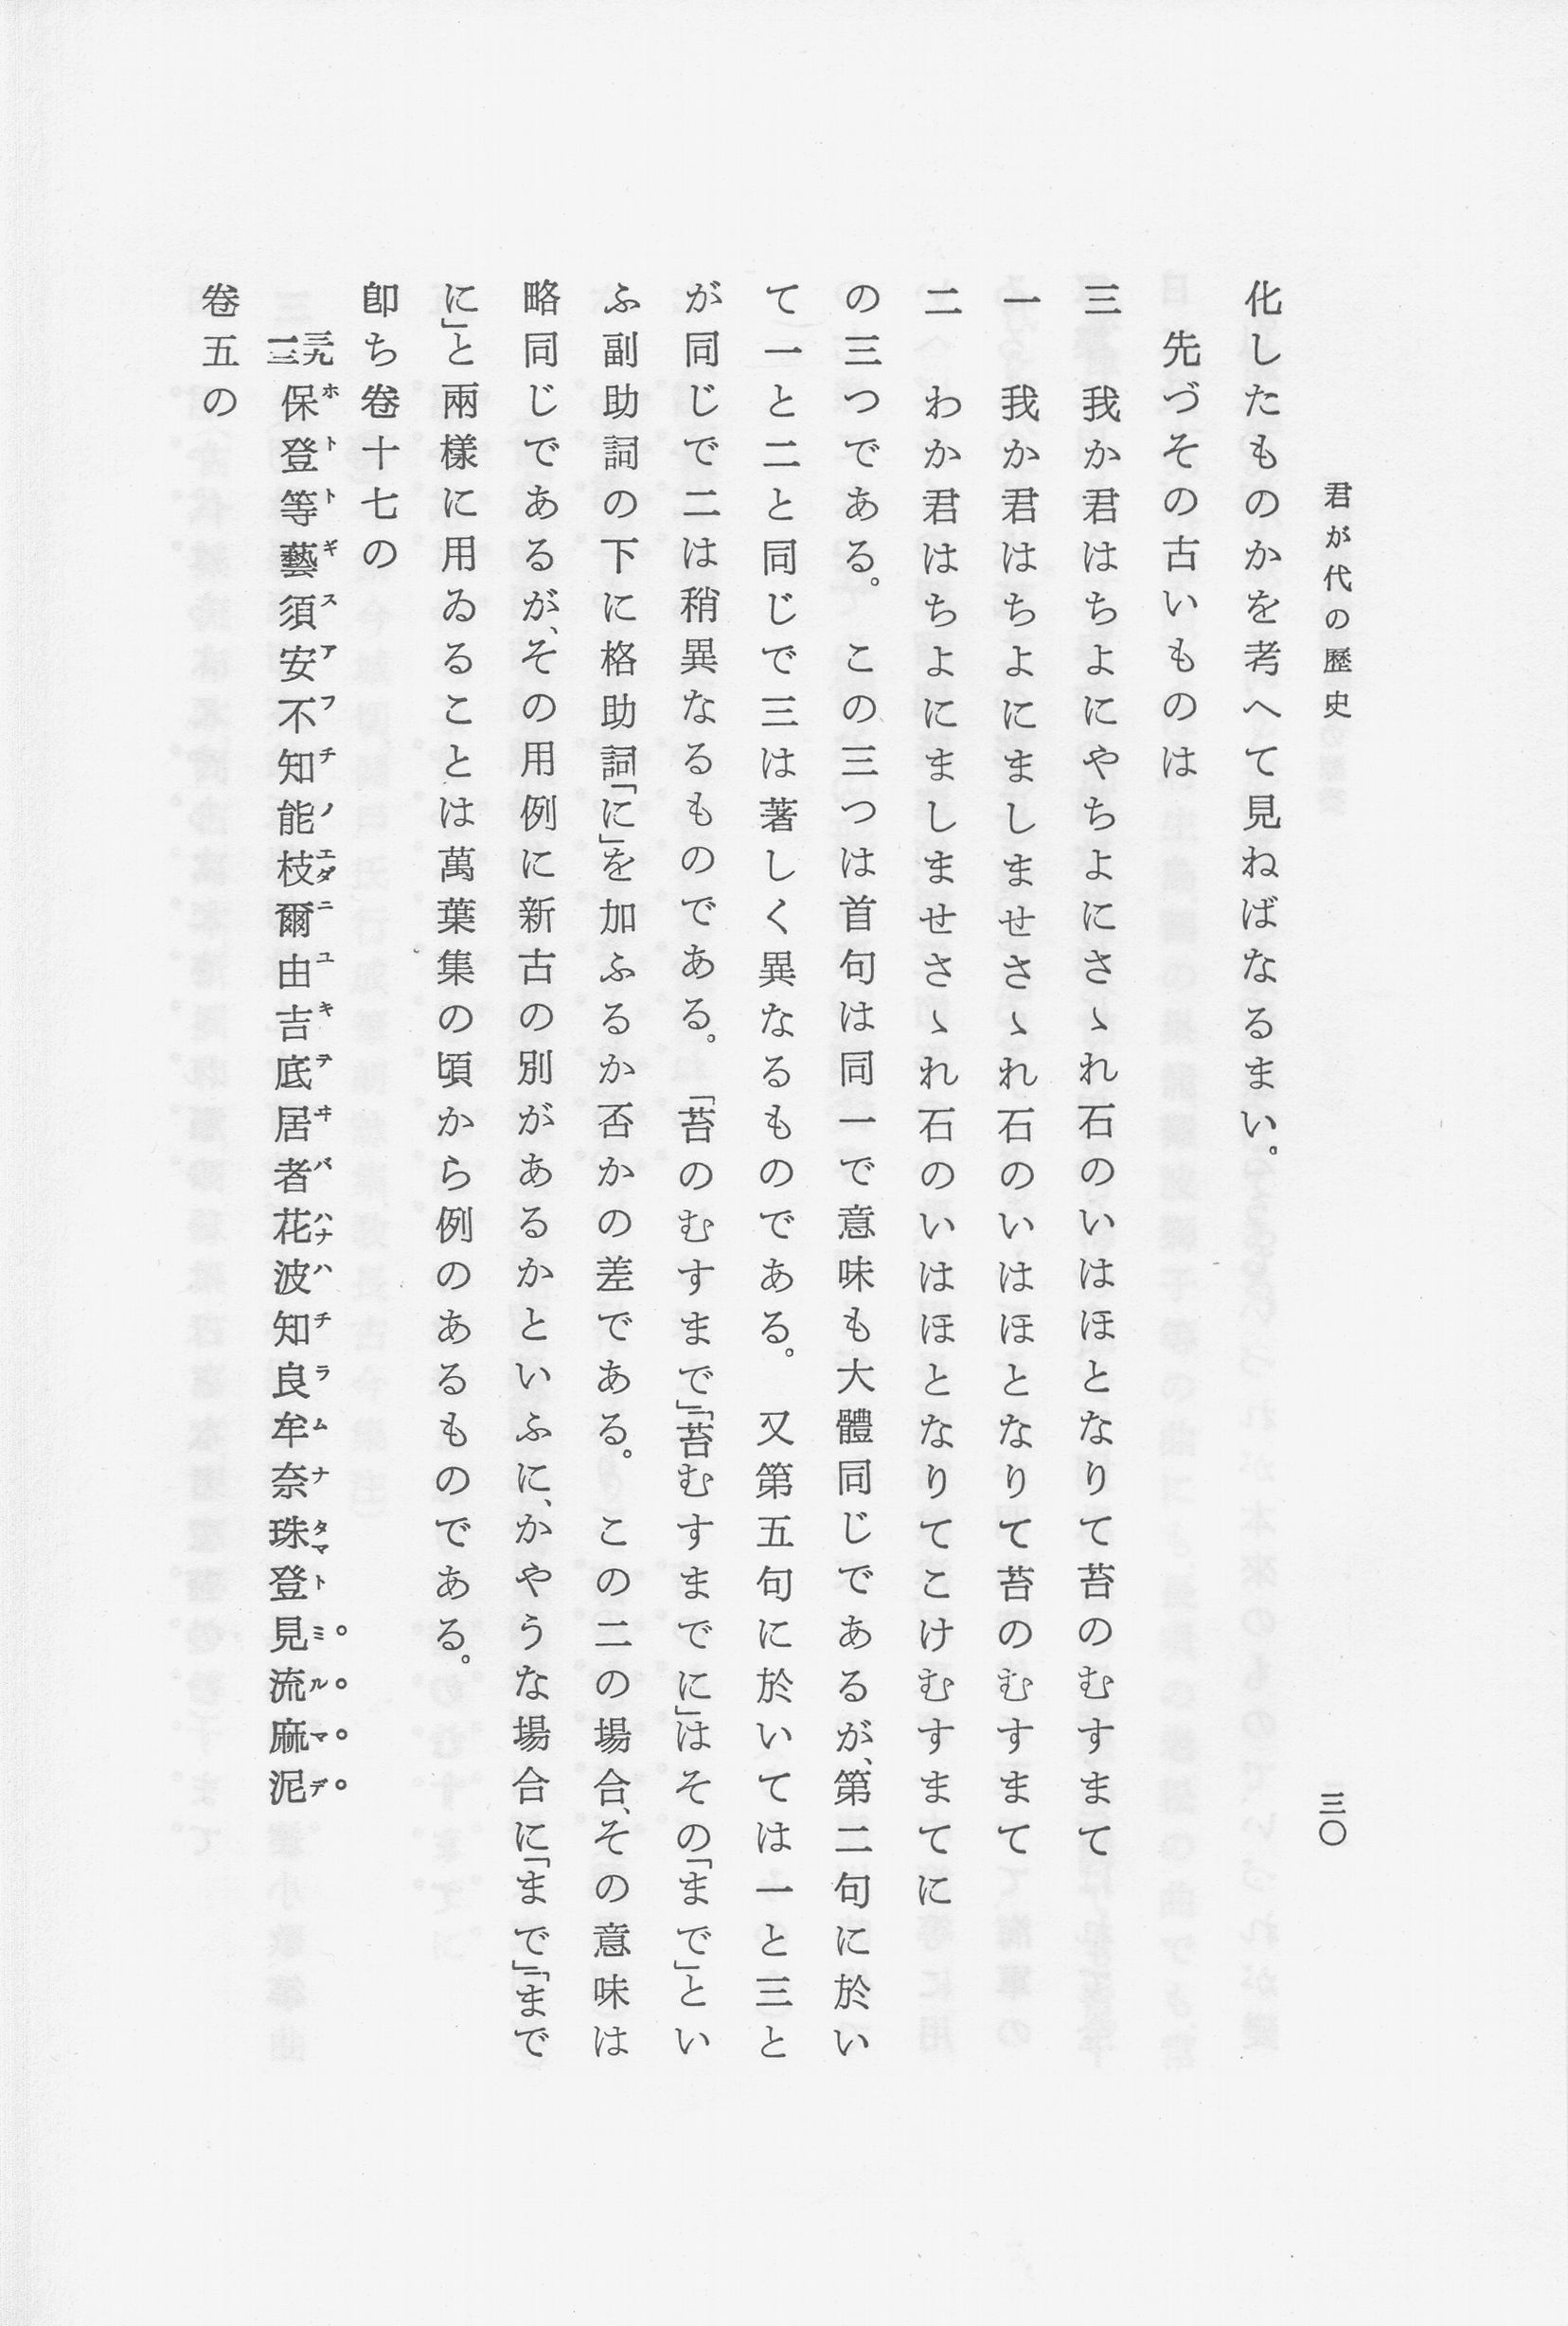 君が代の歷史
三〇
化したものかを考へて見ねばなるまい。
先づその古いものは
三　我か君はちよにやちよにさゝれ石のいはほとなりて苔のむすまて
一　我か君はちよにましませさゝれ石のいはほとなりて苔のむすまて
二　わか君はちよにましませさゝれ石のいはほとなりてこけむすまてに
の三つである。この三つは首句は同一で意味も大體同じであるが、第二句に於い
て一と二と同じで三は著しく異なるものである。又第五句に於いては一と三と
が同じで二は稍異なるものである。「苔のむすまで」「苔むすまでに」はその「まで」とい
ふ副助詞の下に格助詞「に」を加ふるか否かの差である。この二の場合、その意味は
略同じであるが、その用例に新古の別があるかといふに、かやうな場合に「まで」「まで
に」と兩樣に用ゐることは萬葉集の頃から例のあるものである。
卽ち卷十七の
三九一三　保登等藝須安不知能枝爾由吉底居者花波知良牟奈珠登見流麻泥
ホトトギスアフチノエダニユキテヰバハナハチラムナタマトミルマデ
卷五の